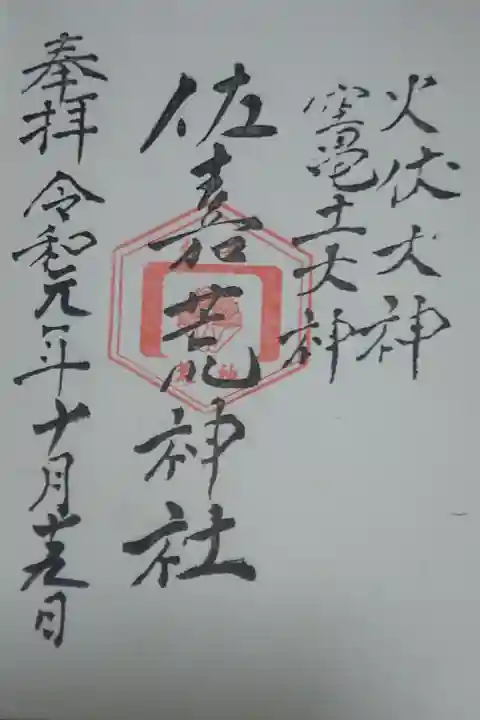 火伏大神
竈土大神
佐嘉荒神社
奉拝 令和元年十月十九日